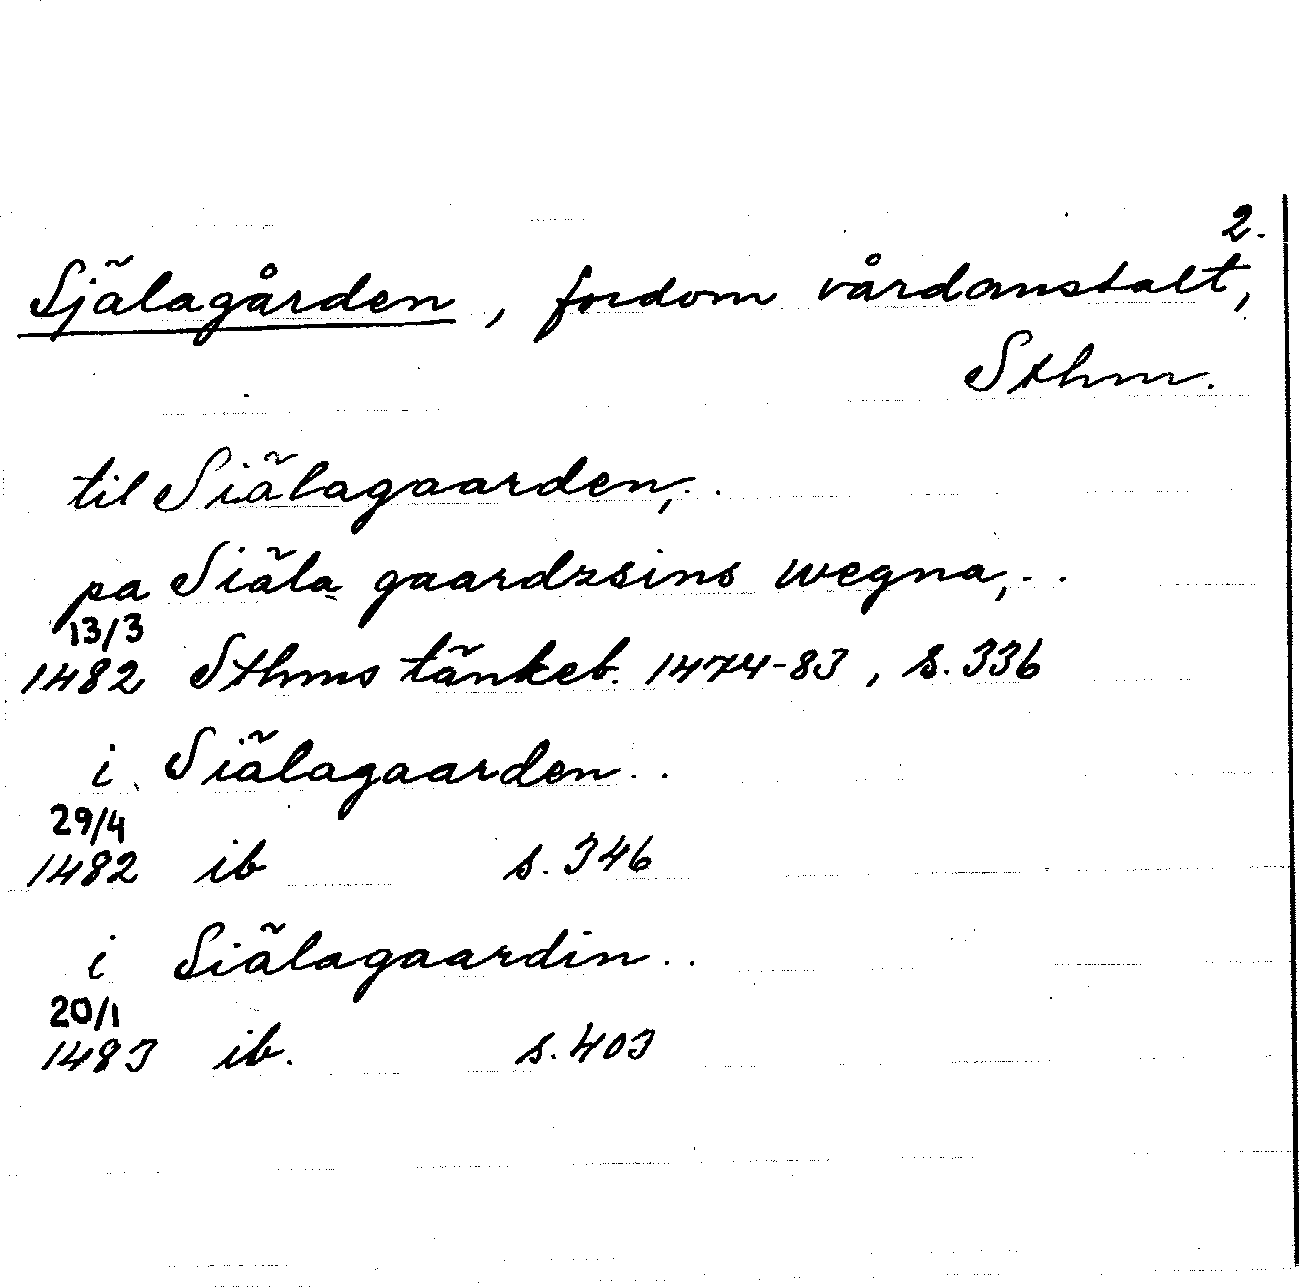 2.
Själagården, fordom vårdanstalt,
Sthm.
til Siälagaarden, . .
pa Siäla gaardzsins wegna, . .
13/3
1482 Sthms tänkeb. 1474-83, s. 336
i Siälagaarden . .
29/4
1482 ib s. 346
i Siälagaardin . .
20/1
1483 ib. s. 403